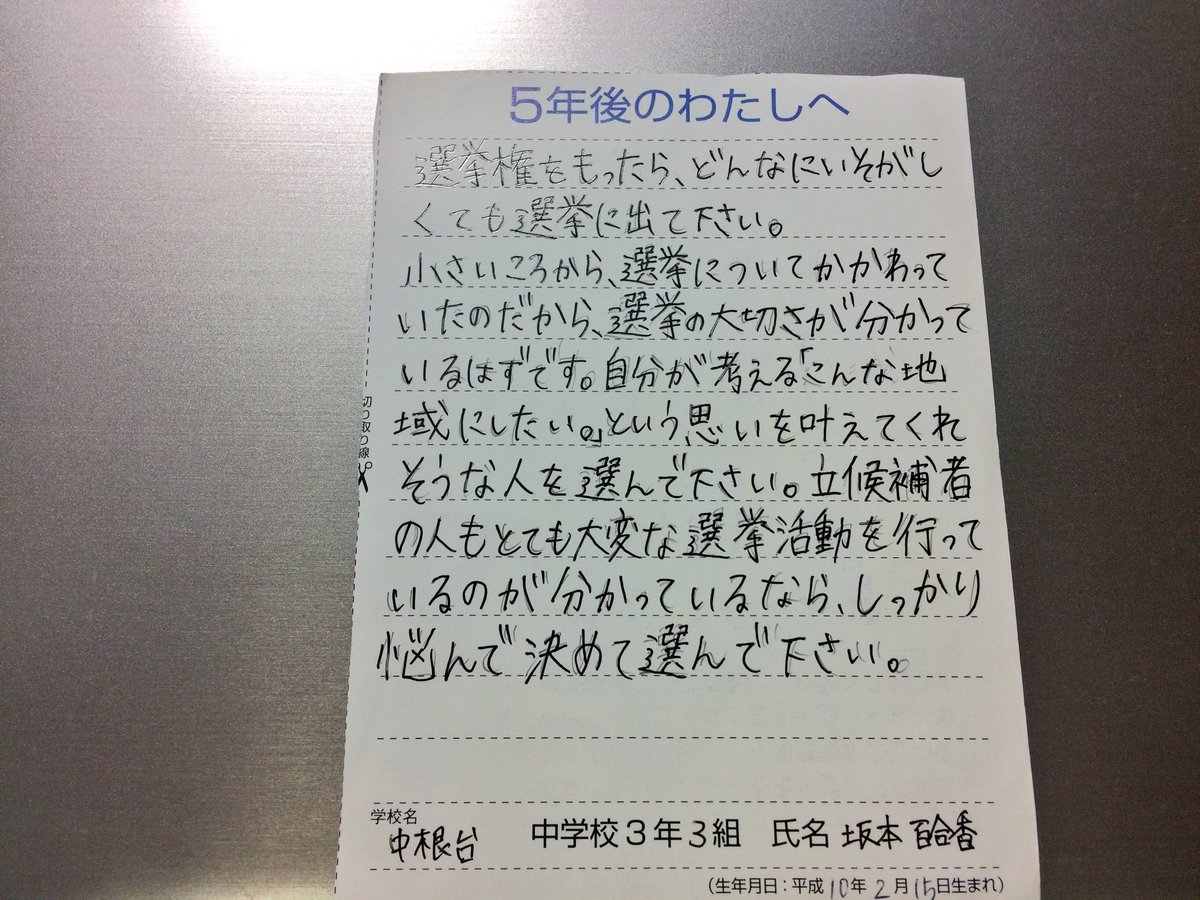 5年後のわたしへ
選挙権をもったら、どんなにいそがし
くても選挙に出て下さい。
小さいころから、選挙についてかかわって
いたのだから、選挙の大切さが分かって
いるはずです。自分が考える「こんな地
域にしたい。」という思いを叶えてくれ
そうな人を選んで下さい。立候補者
の人もとても大変な選挙活動を行って
いるのが分かっているなら、しっかり
悩んで決めて選んで下さい。
切り取り線
学校名
中根台 中学校3年3組 氏名 坂本 百合香
(生年月日:平成10年2月15日生まれ)